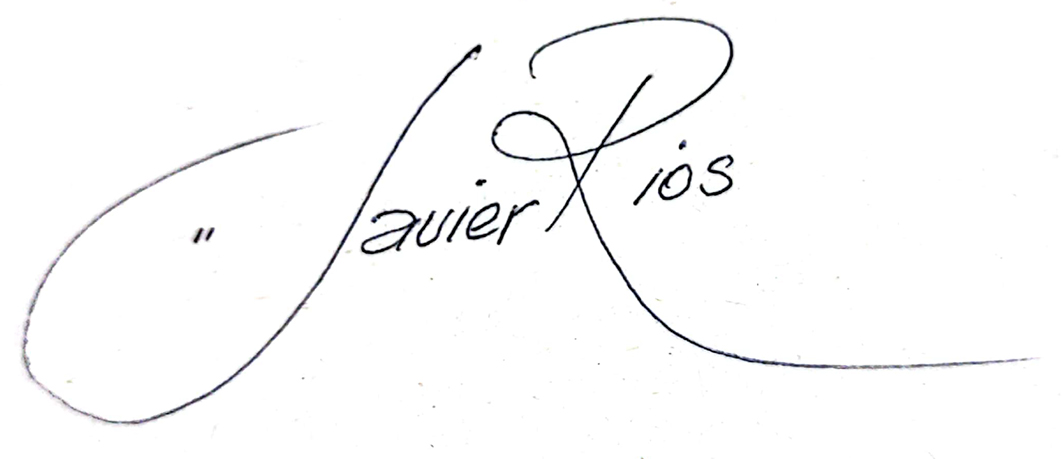 " Javier Ríos